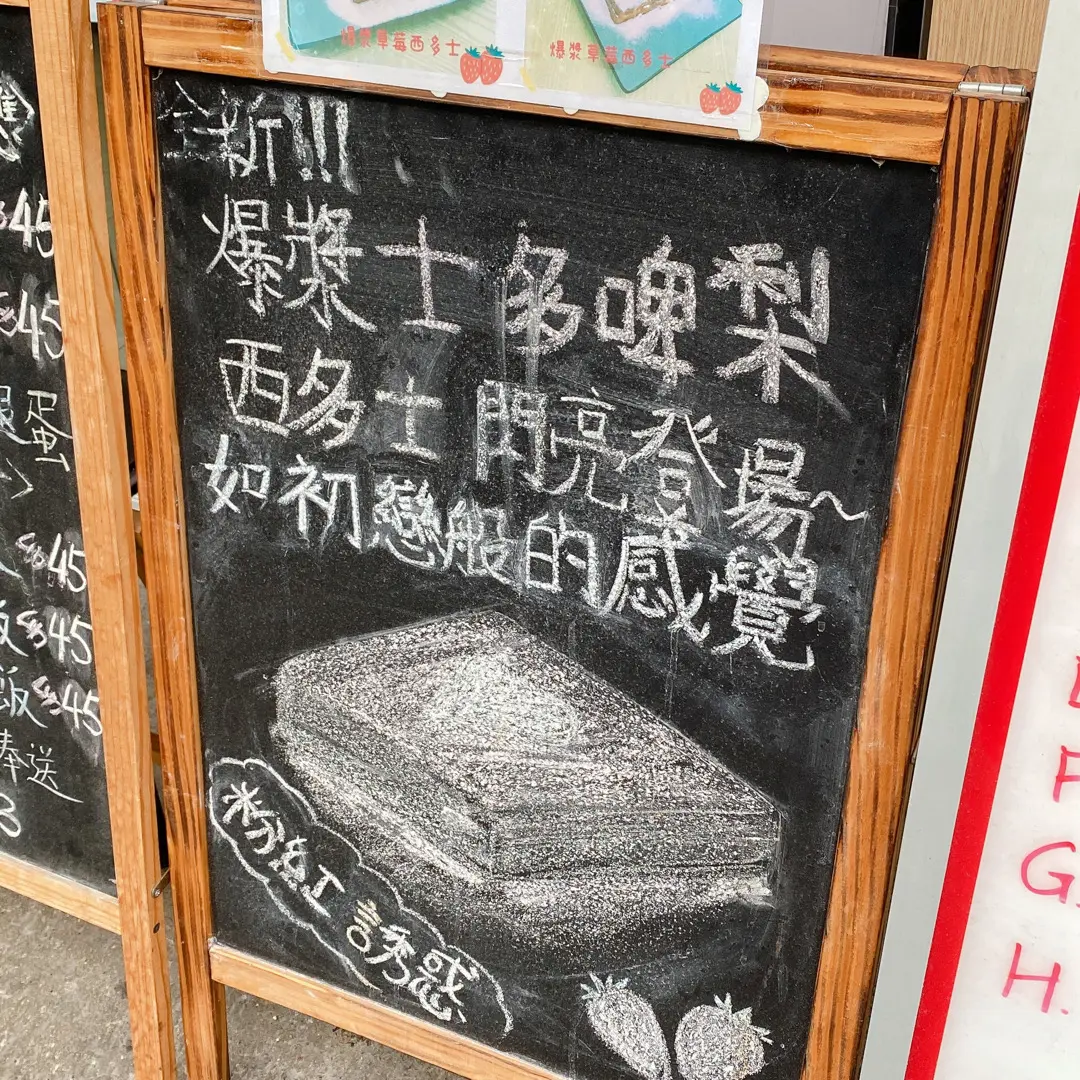 爆漿草莓西多士
爆漿草莓西多士
全新!!!
爆漿士多啤梨
西多士閃亮登場~
如初戀般的感覺
粉紅誘惑
$45
$45
蛋
$45
$45
飯$45
送
3
F
G.
H.